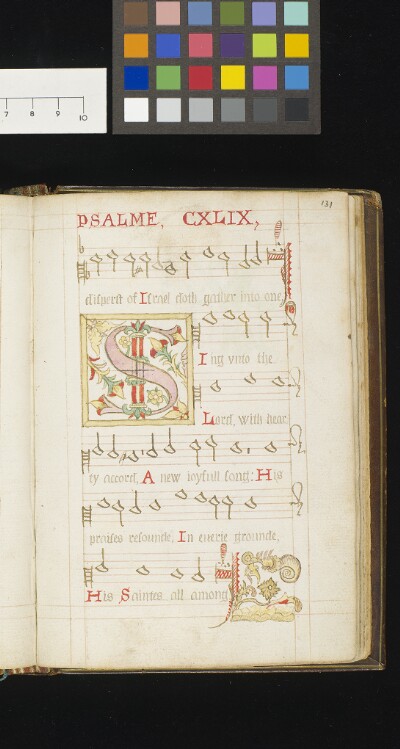 7 8 9 10
131
PSALME, CXLIX,
disperst of Israel doth gather into one,
Sing vnto the
Lord, with hear
ty accord, A new ioyfull song: His
praises resounde, In euerie grounde,
His Saintes all among